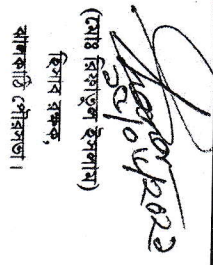 (মোঃ রিফাতুল ইসলাম)
হিসাব রক্ষক,
ঝালকাঠি পৌরসভা।